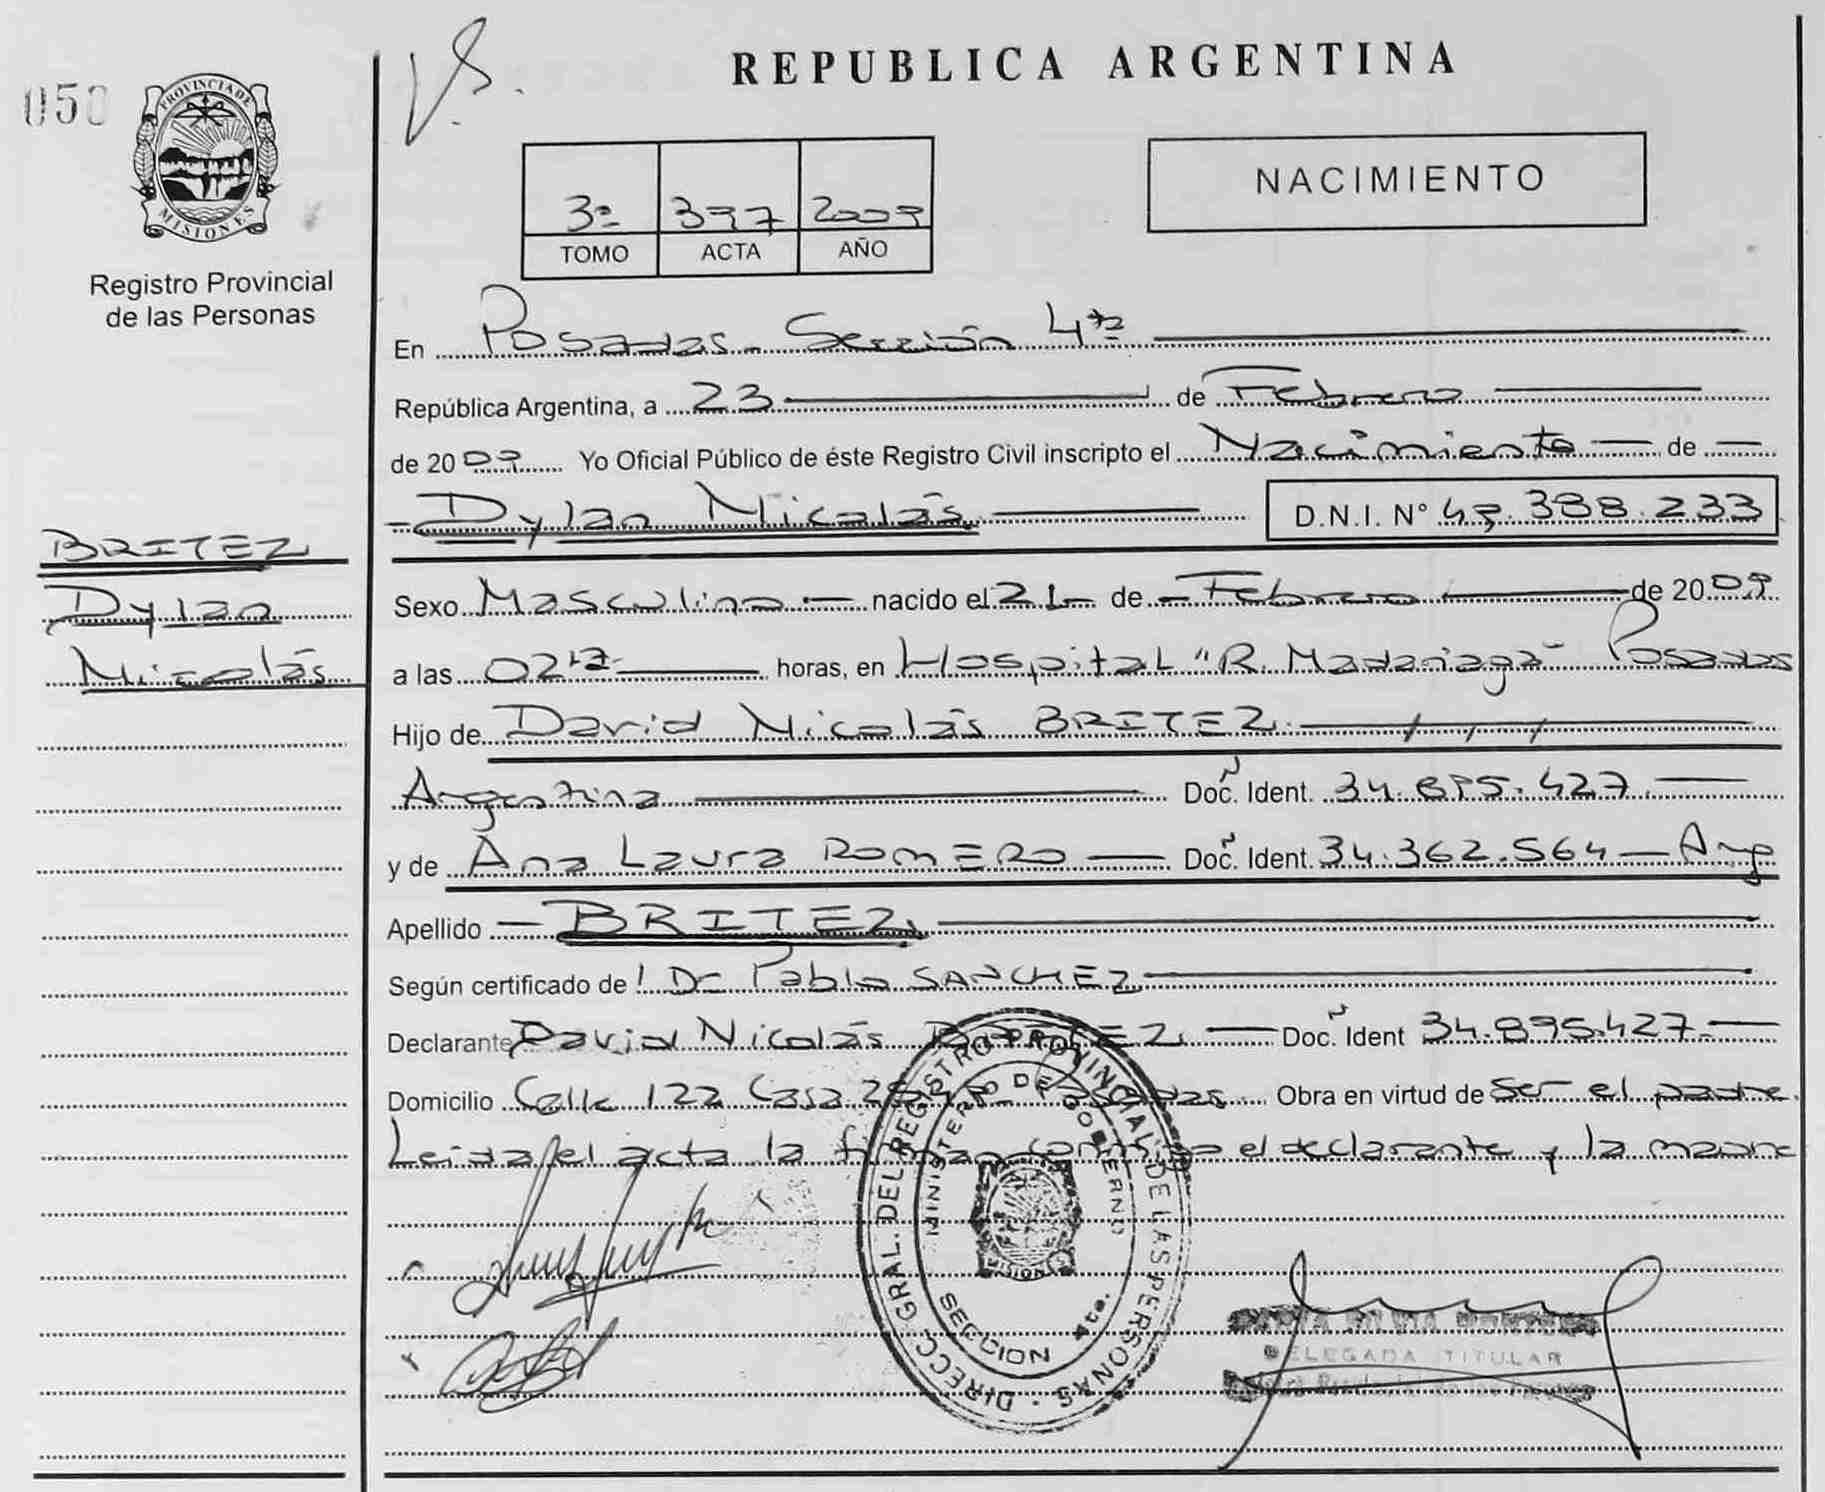 REPUBLICA ARGENTINA
050
PROVINCIA DE MISIONES
Registro Provincial
de las Personas
3º 397 2009
TOMO ACTA AÑO
NACIMIENTO
En Posadas - Sección 4ta
República Argentina, a 23 de Febrero
de 2009 Yo Oficial Público de éste Registro Civil inscripto el Nacimiento de
Dylan Nicolás D.N.I. Nº 388.233
BRITEZ
Dylan
Nicolás
Sexo Masculino nacido el 21 de Febrero de 2009
a las 02 horas, en Hospital "R. Madariaga" Posadas
Hijo de David Nicolás BRITEZ
Argentina Doc. Ident. 34.895.427
y de Ana Laura ROMERO Doc. Ident. 34.362.564 - Arg
Apellido BRITEZ
Según certificado de Dr Pablo SANCHEZ
Declarante David Nicolás BRITEZ Doc. Ident 34.895.427
Domicilio Calle 122 Casa Posadas Obra en virtud de ser el padre.
Leida el acta la firman conmigo el declarante y la madre
DIRECC. GRAL. DEL REGISTRO PROVINCIAL DE LAS PERSONAS
MINISTERIO DE GOBIERNO
SECCION 4ta.
DELEGADA TITULAR